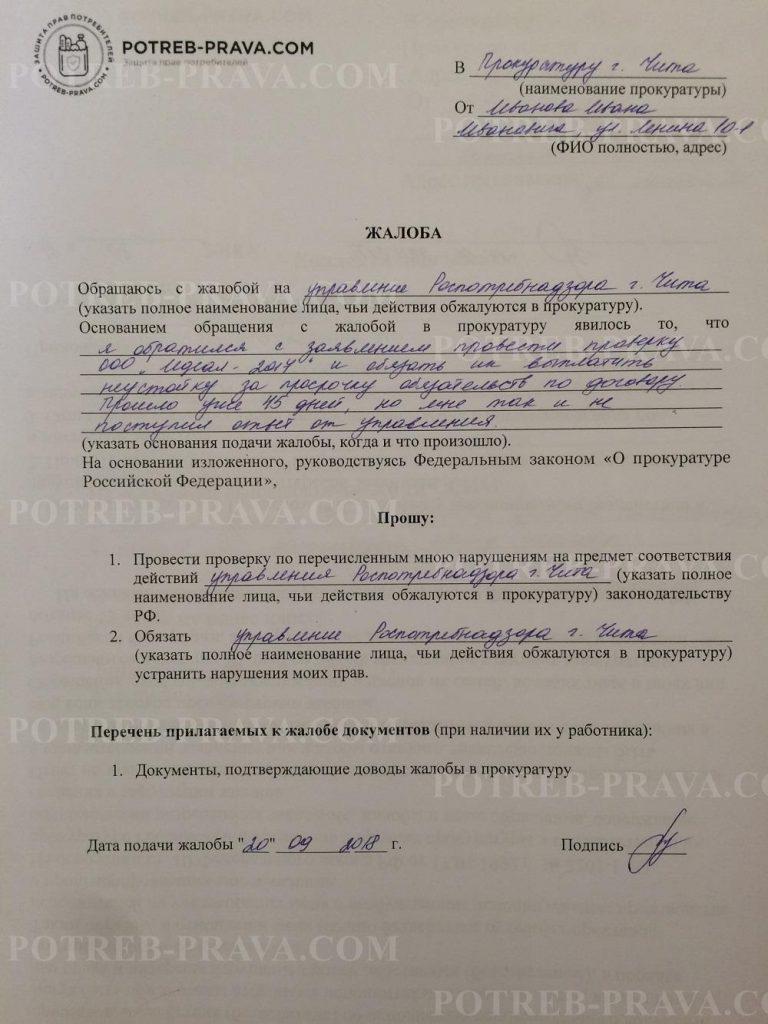 ЗАЩИТА ПРАВ ПОТРЕБИТЕЛЕЙ
POTREB-PRAVA.COM
POTREB-PRAVA.COM
Защита прав потребителей
POTREB-PRAVA.COM
В Прокуратуру г. Чита
(наименование прокуратуры)
От Иванова Ивана
Ивановича, ул. Ленина 10-1
(ФИО полностью, адрес)
POTREB-PRAVA.CO
ЖАЛОБА
Обращаюсь с жалобой на управление Роспотребнадзора г. Чита
POTREB-PRAVA.COM
(указать полное наименование лица, чьи действия обжалуются в прокуратуру).
Основанием обращения с жалобой в прокуратуру явилось то, что
я обратился с заявлением провести проверку
ООО "Идеал-2014" и обязать их выплатить
POTREB-PRAVA.CO
неустойку за просрочку обязательств по договору
Прошло уже 45 дней, но мне так и не
поступил ответ от управления.
(указать основания подачи жалобы, когда и что произошло).
На основании изложенного, руководствуясь Федеральным законом «О прокуратуре
Российской Федерации»,
POTREB-PRAVA.COM
Прошу:
1. Провести проверку по перечисленным мною нарушениям на предмет соответствия
действий управления Роспотребнадзора г. Чита (указать полное
POTREB-PRAVA.CO
наименование лица, чьи действия обжалуются в прокуратуру) законодательству
РФ.
2. Обязать управление Роспотребнадзора г. Чита
(указать полное наименование лица, чьи действия обжалуются в прокуратуру)
устранить нарушения моих прав.
POTREB-PRAVA.COM
Перечень прилагаемых к жалобе документов (при наличии их у работника):
1. Документы, подтверждающие доводы жалобы в прокуратуру
POTREB-PRAVA.CO
Дата подачи жалобы "20" 09 2018 г.
Подпись
POTREB-PRAVA.COM
POTREB-PRAVA.CO